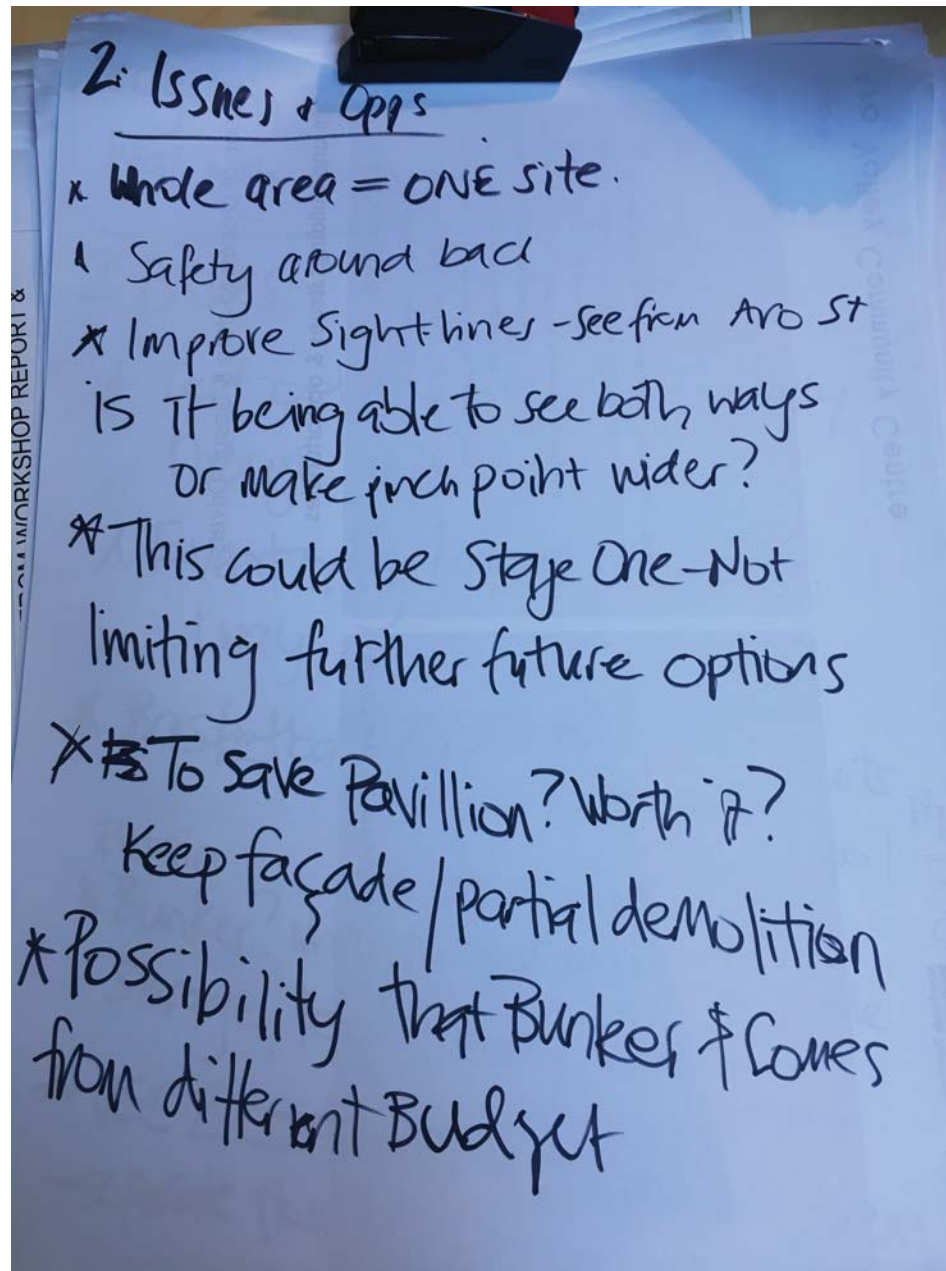 2. Issues + Opps
* Whole area = ONE site.
* Safety around back
* Improve Sightlines - see from Aro St
is it being able to see both ways
or make pinch point wider?
* This could be Stage One - Not
limiting further future options
* To Save Pavillion? Worth it?
Keep façade / partial demolition
* Possibility that Bunker $ Comes
from different Budget
WORKSHOP REPORT &
Community Centre